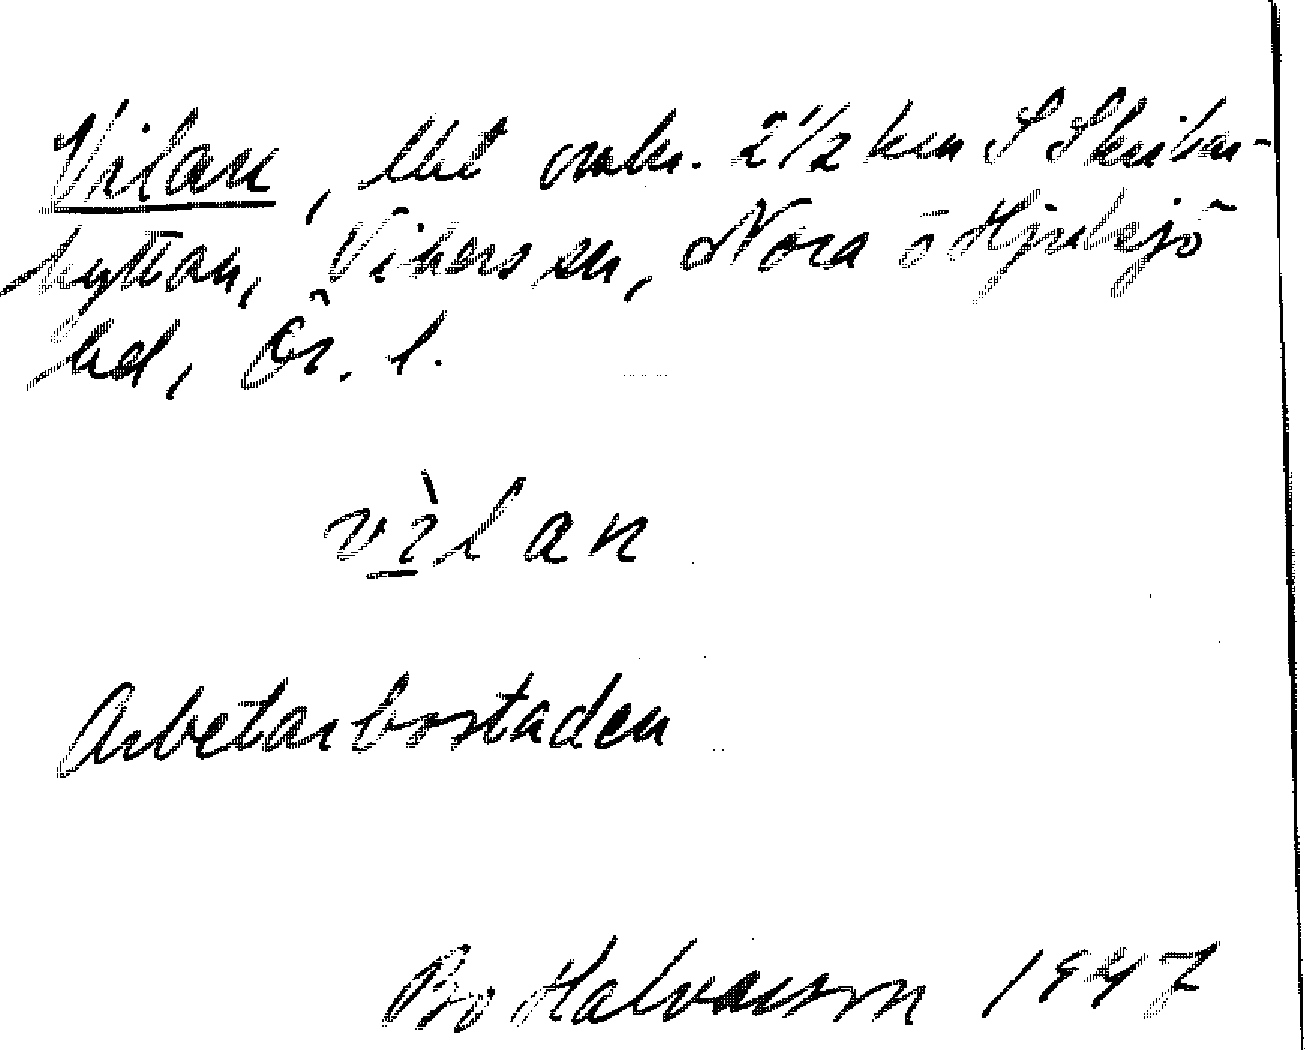 Vilan, lht omkr. 2 1/2 km S Skribar-
hyttan, Vikers sn, Nora o Hjulsjö
bd, Ör. l.
vìlan
Arbetarbostaden
Bo Halvarson 1947